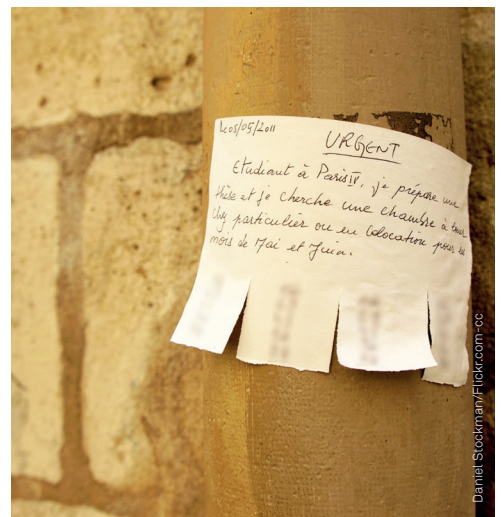 Le 05/05/2011
URGENT
Etudiant à Paris IV, je prépare une
thèse et je cherche une chambre à louer
chez particulier ou en colocation pour les
mois de Mai et Juin.
Daniel Stockman/Flickr.com-cc